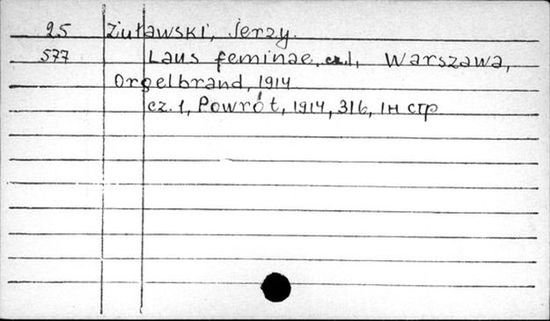 25 Żuławski, Jerzy.
577 Laus feminae, cz. 1, Warszawa,
Orgelbrand, 1914
cz. 1, Powrót, 1914, 316, 1н стр